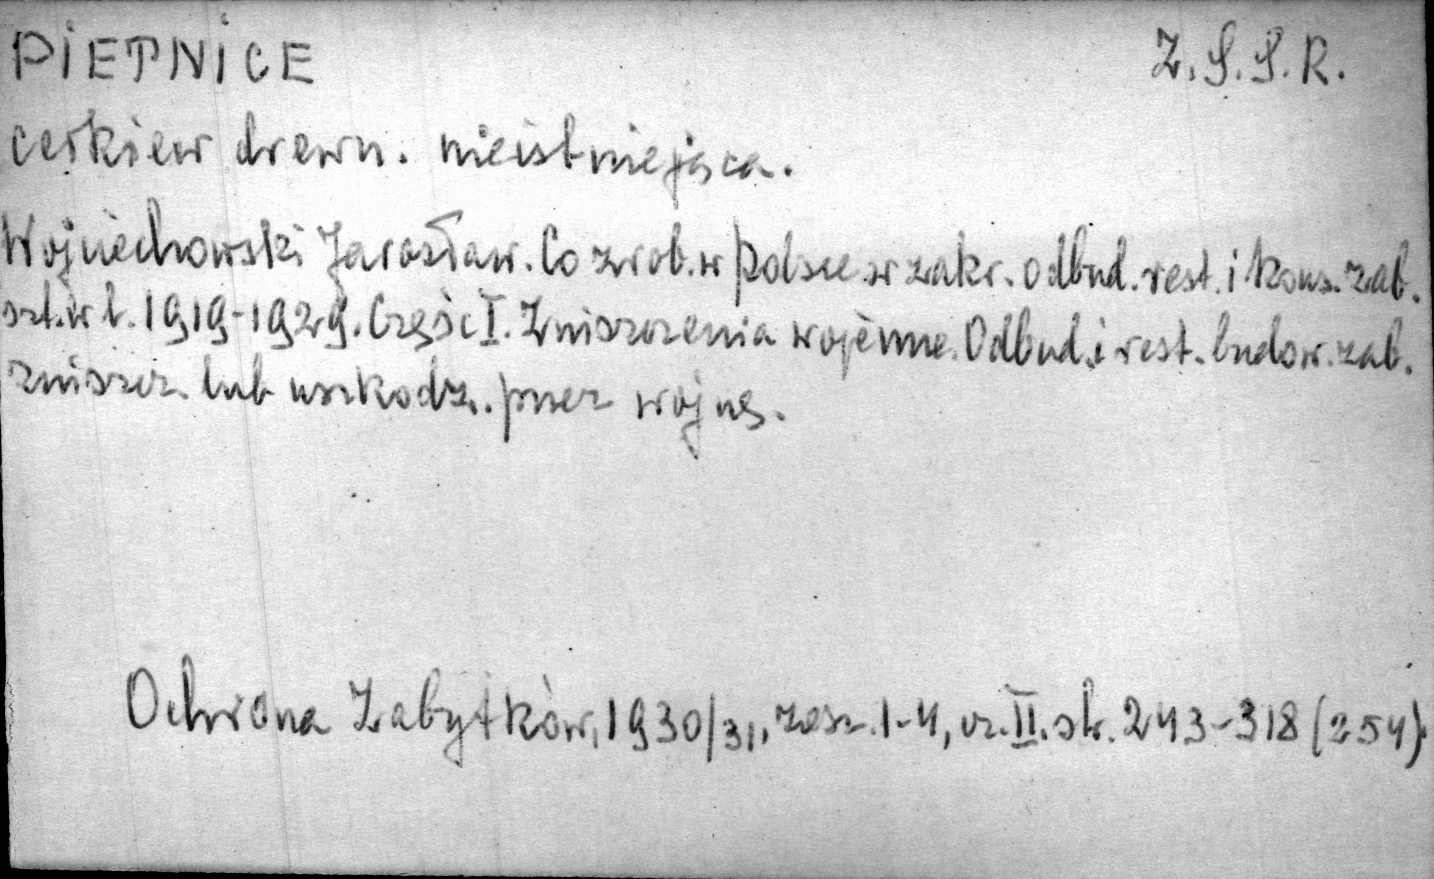 PIETNICE Z.S.S.R.
cerkiew drewn. nieistniejąca.
Wojciechowski Jarosław. Co zrob. w Polsce w zakr. odbud. rest. i kons. zab.
szt. w l. 1919-1929. Część I. Zniszczenia wojenne. Odbud. i rest. budow. zab.
zniszcz. lub uszkodz. przez wojnę.
Ochrona Zabytków, 1930/31, zesz. 1-4, cz. II. str. 243-318 (254).